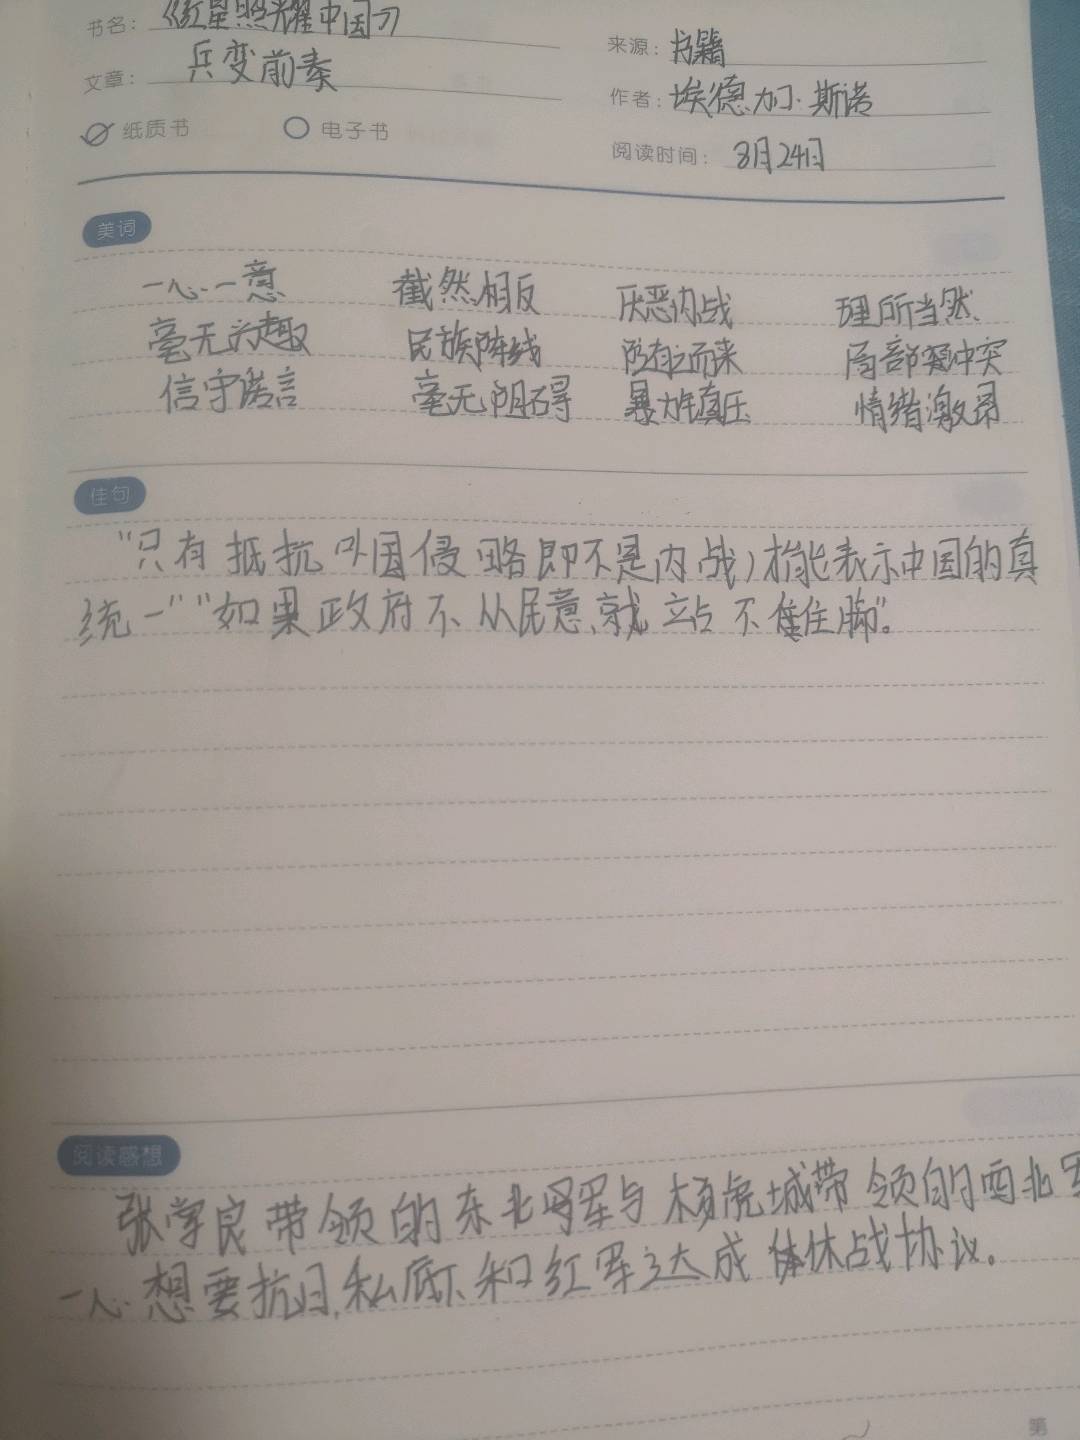 书名：《红星照耀中国》
来源：书籍
文章：兵变前奏
作者：埃德加·斯诺
纸质书 电子书
阅读时间：8月24日
美词
一心一意 截然相反 厌恶内战 理所当然
毫无兴趣 民族阵线 随之而来 局部冲突
信守诺言 毫无阻碍 暴力镇压 情绪激昂
佳句
“只有抵抗外国侵略即不是内战，才能表示中国的真
统一”“如果政府不从民意，就站不住脚”。
阅读感想
张学良带领的东北军与杨虎城带领的西北军
一心想要抗日，私底下和红军达成休战协议。
第